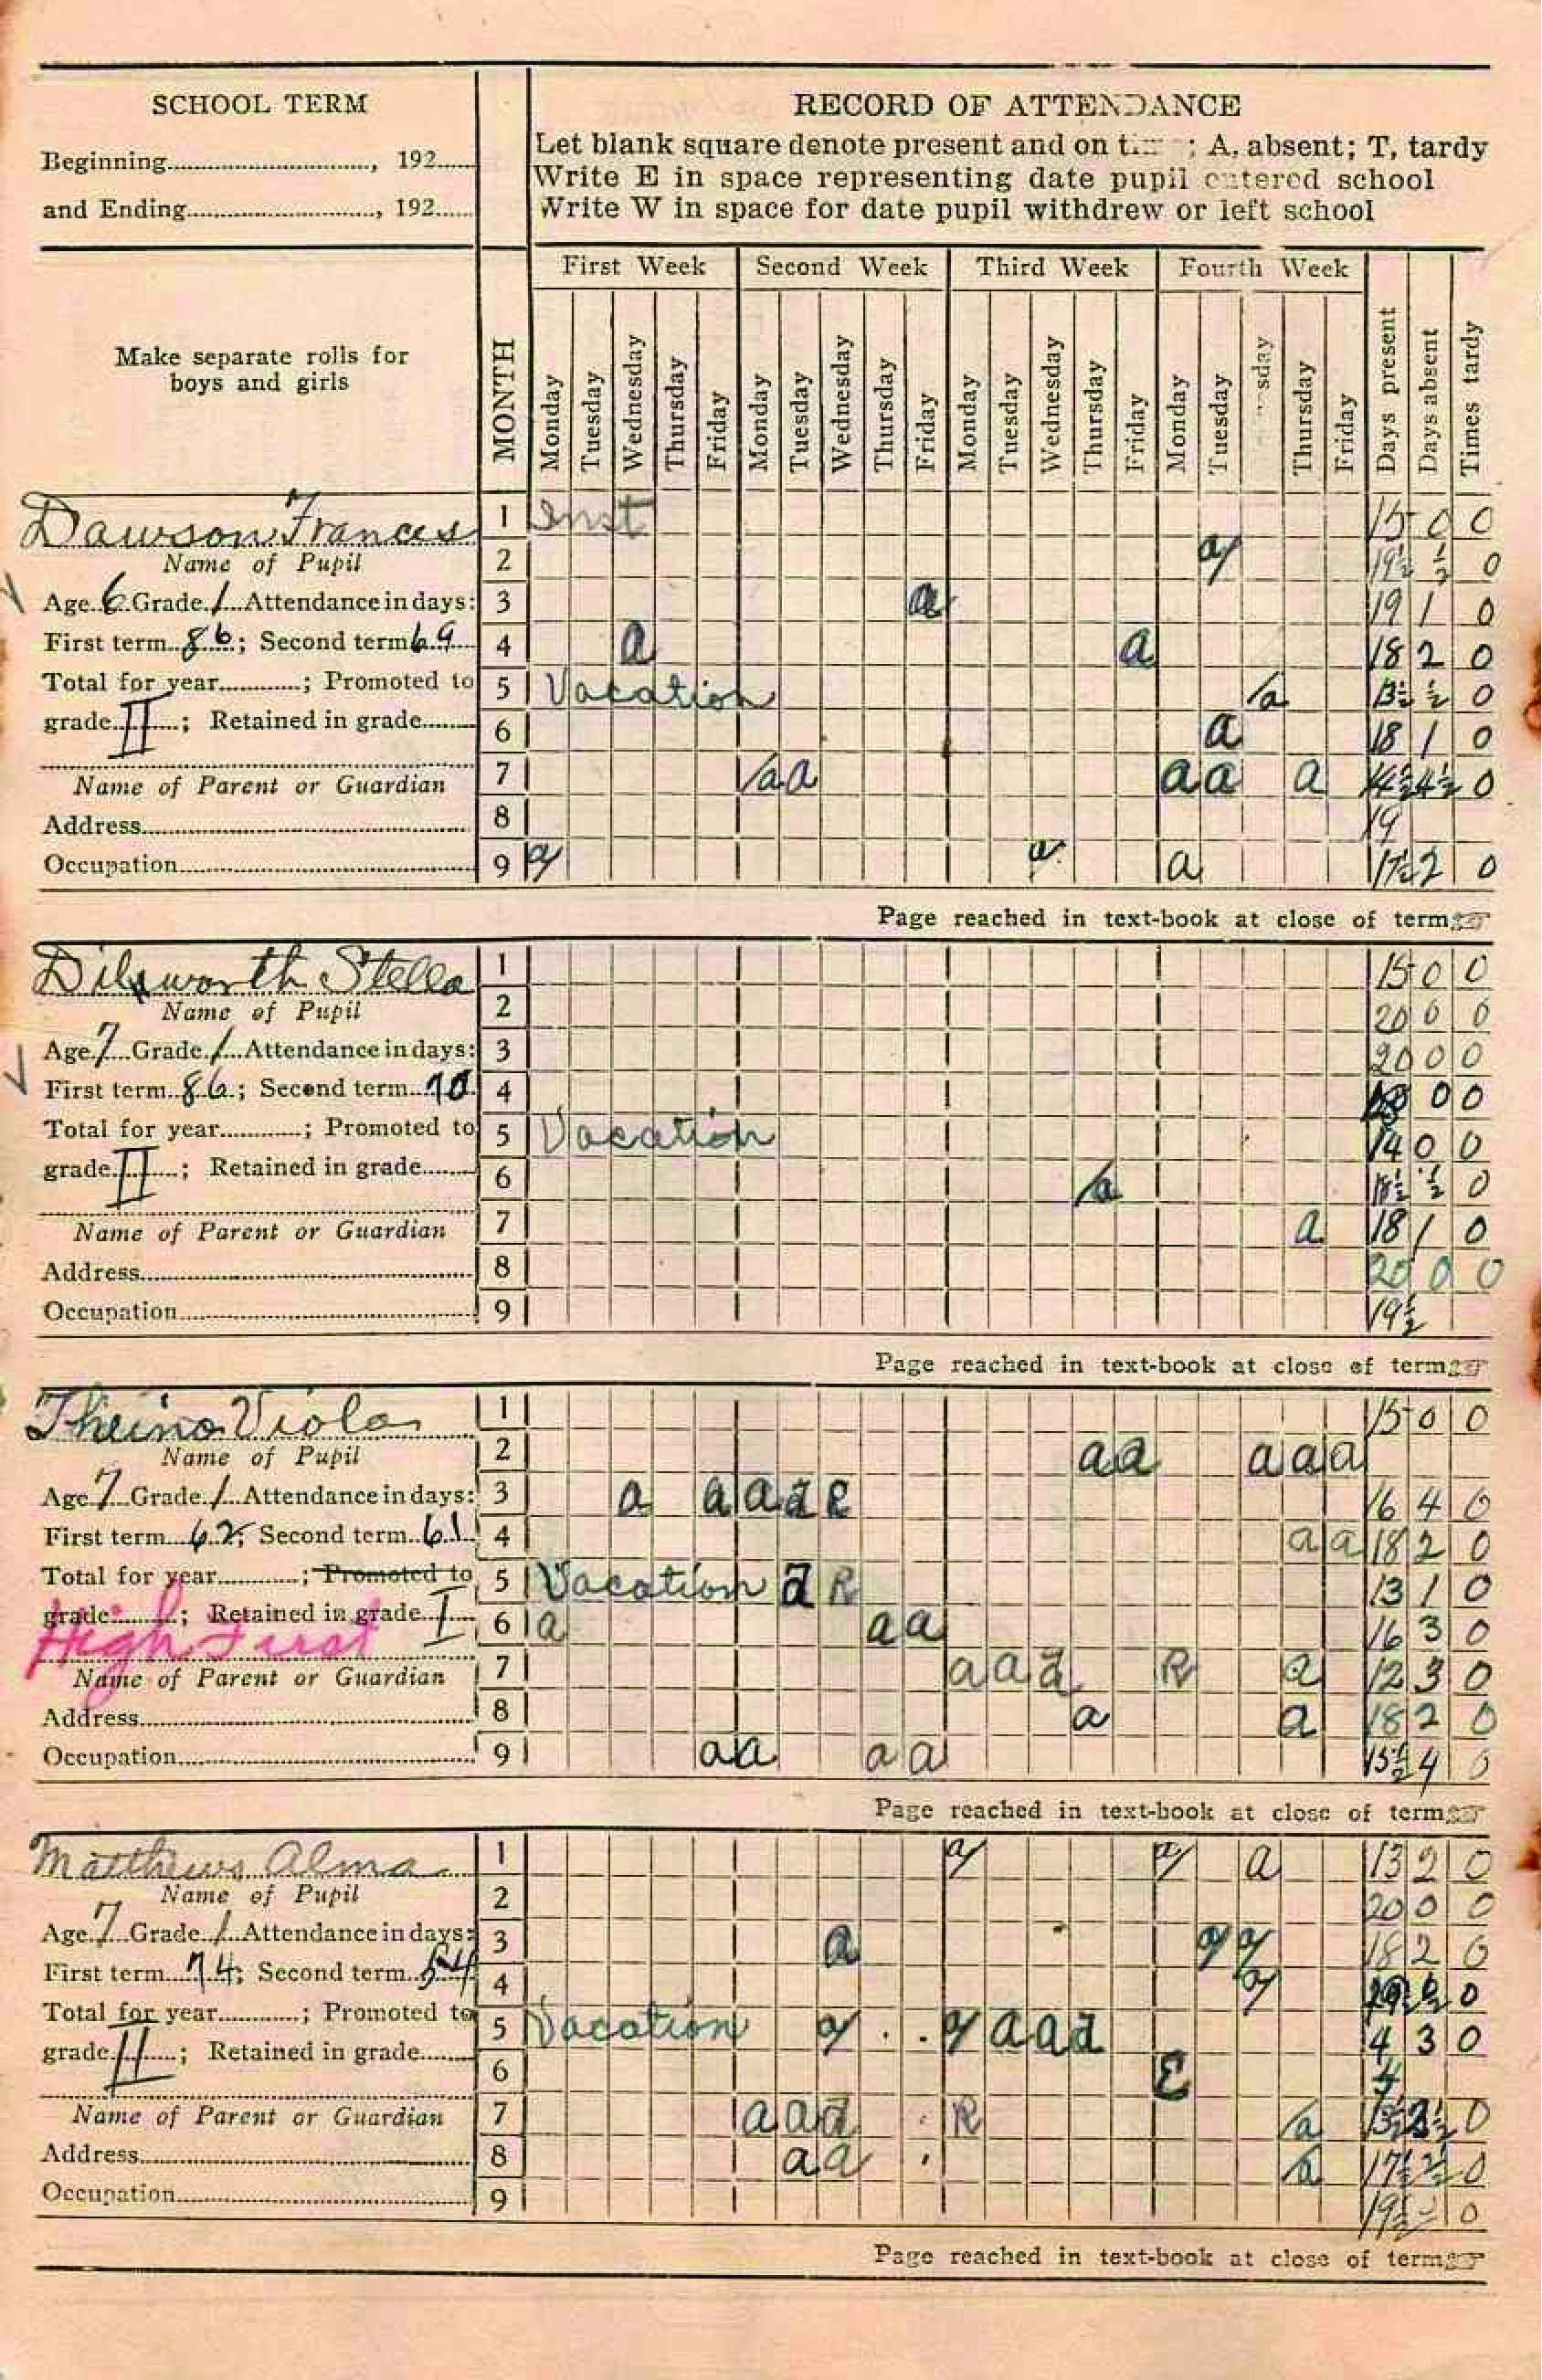 SCHOOL TERM
Beginning............, 192......
and Ending............, 192......
RECORD OF ATTENDANCE
Let blank square denote present and on ; A, absent; T, tardy
Write E in space representing date pupil entered school
Write W in space for date pupil withdrew or left school
Make separate rolls for
boys and girls
MONTH
First Week Second Week Third Week Fourth Week
Monday Tuesday Wednesday Thursday Friday Monday Tuesday Wednesday Thursday Friday Monday Tuesday Wednesday Thursday Friday Monday Tuesday Thursday Friday Days present Days absent Times tardy
Dawson Frances
Name of Pupil
Age 6 Grade 1 Attendance in days:
First term 86; Second term 69
Total for year............; Promoted to
grade II; Retained in grade........
Name of Parent or Guardian
Address............
Occupation............
1 Inst 15 0 0
2 a 19½ ½ 0
3 a 19 1 0
4 a a 18 2 0
5 Vacation a 13½ ½ 0
6 a 18 1 0
7 a a a a a 14½ 4½ 0
8 19
9 a a a 17½ 2 0
Page reached in text-book at close of term
Dilworth Stella
Name of Pupil
Age 7 Grade 1 Attendance in days:
First term 86; Second term 70
Total for year............; Promoted to
grade II; Retained in grade........
Name of Parent or Guardian
Address............
Occupation............
1 15 0 0
2 20 0 0
3 20 0 0
4 0 0
5 Vacation 14 0 0
6 a 18½ ½ 0
7 a 18 1 0
8 20 0 0
9 19½
Page reached in text-book at close of term
Viola
Name of Pupil
Age 7 Grade 1 Attendance in days:
First term 62; Second term 61
Total for year............; Promoted to
grade........; Retained in grade I
High First
Name of Parent or Guardian
Address............
Occupation............
1 15 0 0
2 a a a a a
3 a a a a R 16 4 0
4 a a 18 2 0
5 Vacation R 13 1 0
6 a a a 16 3 0
7 a a R a 12 3 0
8 a a 18 2 0
9 a a a a 15½ 4 0
Page reached in text-book at close of term
Matthews, Alma
Name of Pupil
Age 7 Grade 1 Attendance in days:
First term 74; Second term 54
Total for year............; Promoted to
grade II; Retained in grade........
Name of Parent or Guardian
Address............
Occupation............
1 a a a 13 2 0
2 20 0 0
3 a a a 18 2 0
4 a 0
5 Vacation a a a a 4 3 0
6 E 4
7 a a R a 0
8 a a a 17½ 2½ 0
9 19½ 0
Page reached in text-book at close of term